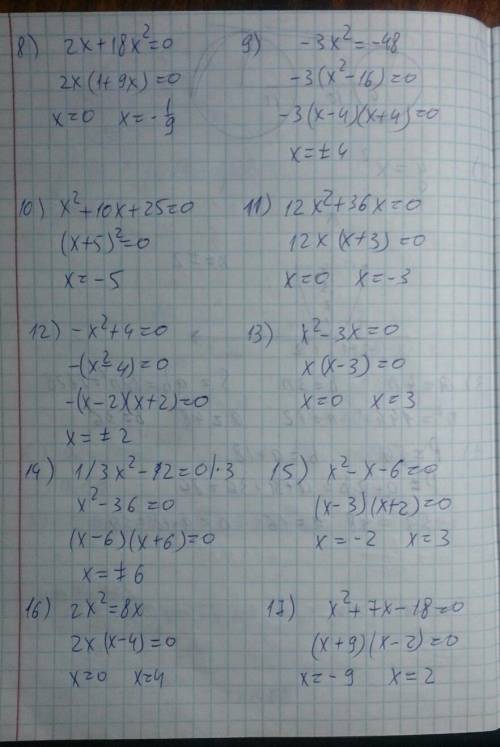 8) 2x+18x²=0
2x(1+9x)=0
x=0 x=-1/9
9) -3x²=-48
-3(x²-16)=0
-3(x-4)(x+4)=0
x=±4
10) x²+10x+25=0
(x+5)²=0
x=-5
11) 12x²+36x=0
12x(x+3)=0
x=0 x=-3
12) -x²+4=0
-(x²-4)=0
-(x-2)(x+2)=0
x=±2
13) x²-3x=0
x(x-3)=0
x=0 x=3
14) 1/3x²-12=0/·3
x²-36=0
(x-6)(x+6)=0
x=±6
15) x²-x-6=0
(x-3)(x+2)=0
x=-2 x=3
16) 2x²=8x
2x(x-4)=0
x=0 x=4
17) x²+7x-18=0
(x+9)(x-2)=0
x=-9 x=2